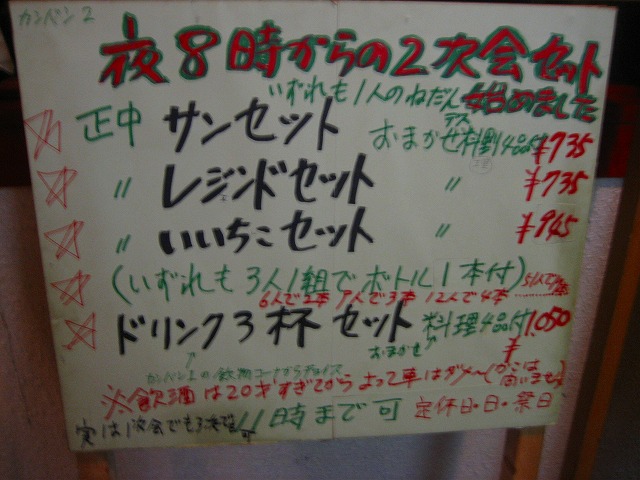 カンバン2
夜8時からの2次会セット
いずれも1人のねだんデス 始めました
☆ 正中 サンセット おまかせ料理4品付 ¥735
☆ 〃 レジェンドセット 〃 ¥735
☆ 〃 いいちこセット 〃 ¥945
☆ (いずれも3人1組でボトル1本付)
6人で2本 9人で3本 12人で4本
☆ ドリンク3杯セット おまかせ 料理4品付 ¥1,050
カンバン1の飲物コーナからチョイス
※飲酒は20才すぎてから よって車はダメ〜
実は1次会でも 可 11時まで可 定休日・日・祭日